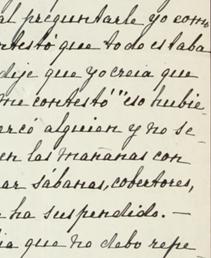 al preguntarle yo como
ntestó que todo estaba
dije que yo creia que
me contestó "eso hubie-
ercó alguien y no se-
en las mañanas con
ar sábanas, cobertores,
e ha suspendido. —
ia que no debo repe-